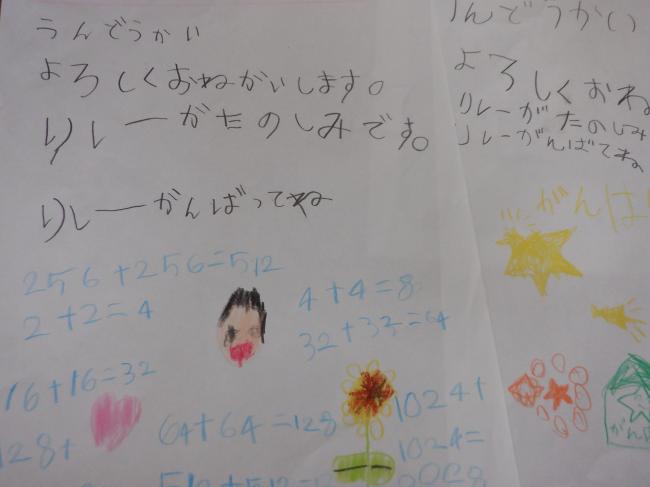 うんどうかい
よろしくおねがいします。
りレーがたのしみです。
りレーがんばってね
256+256=512
2+2=4
4+4=8
32+32=64
16+16=32
64+64=128
128+
1024+
1024=
512+512=
んどうかい
よろしくおね
りレーがたのしみ
りレーがんばてね
がんば
がんば